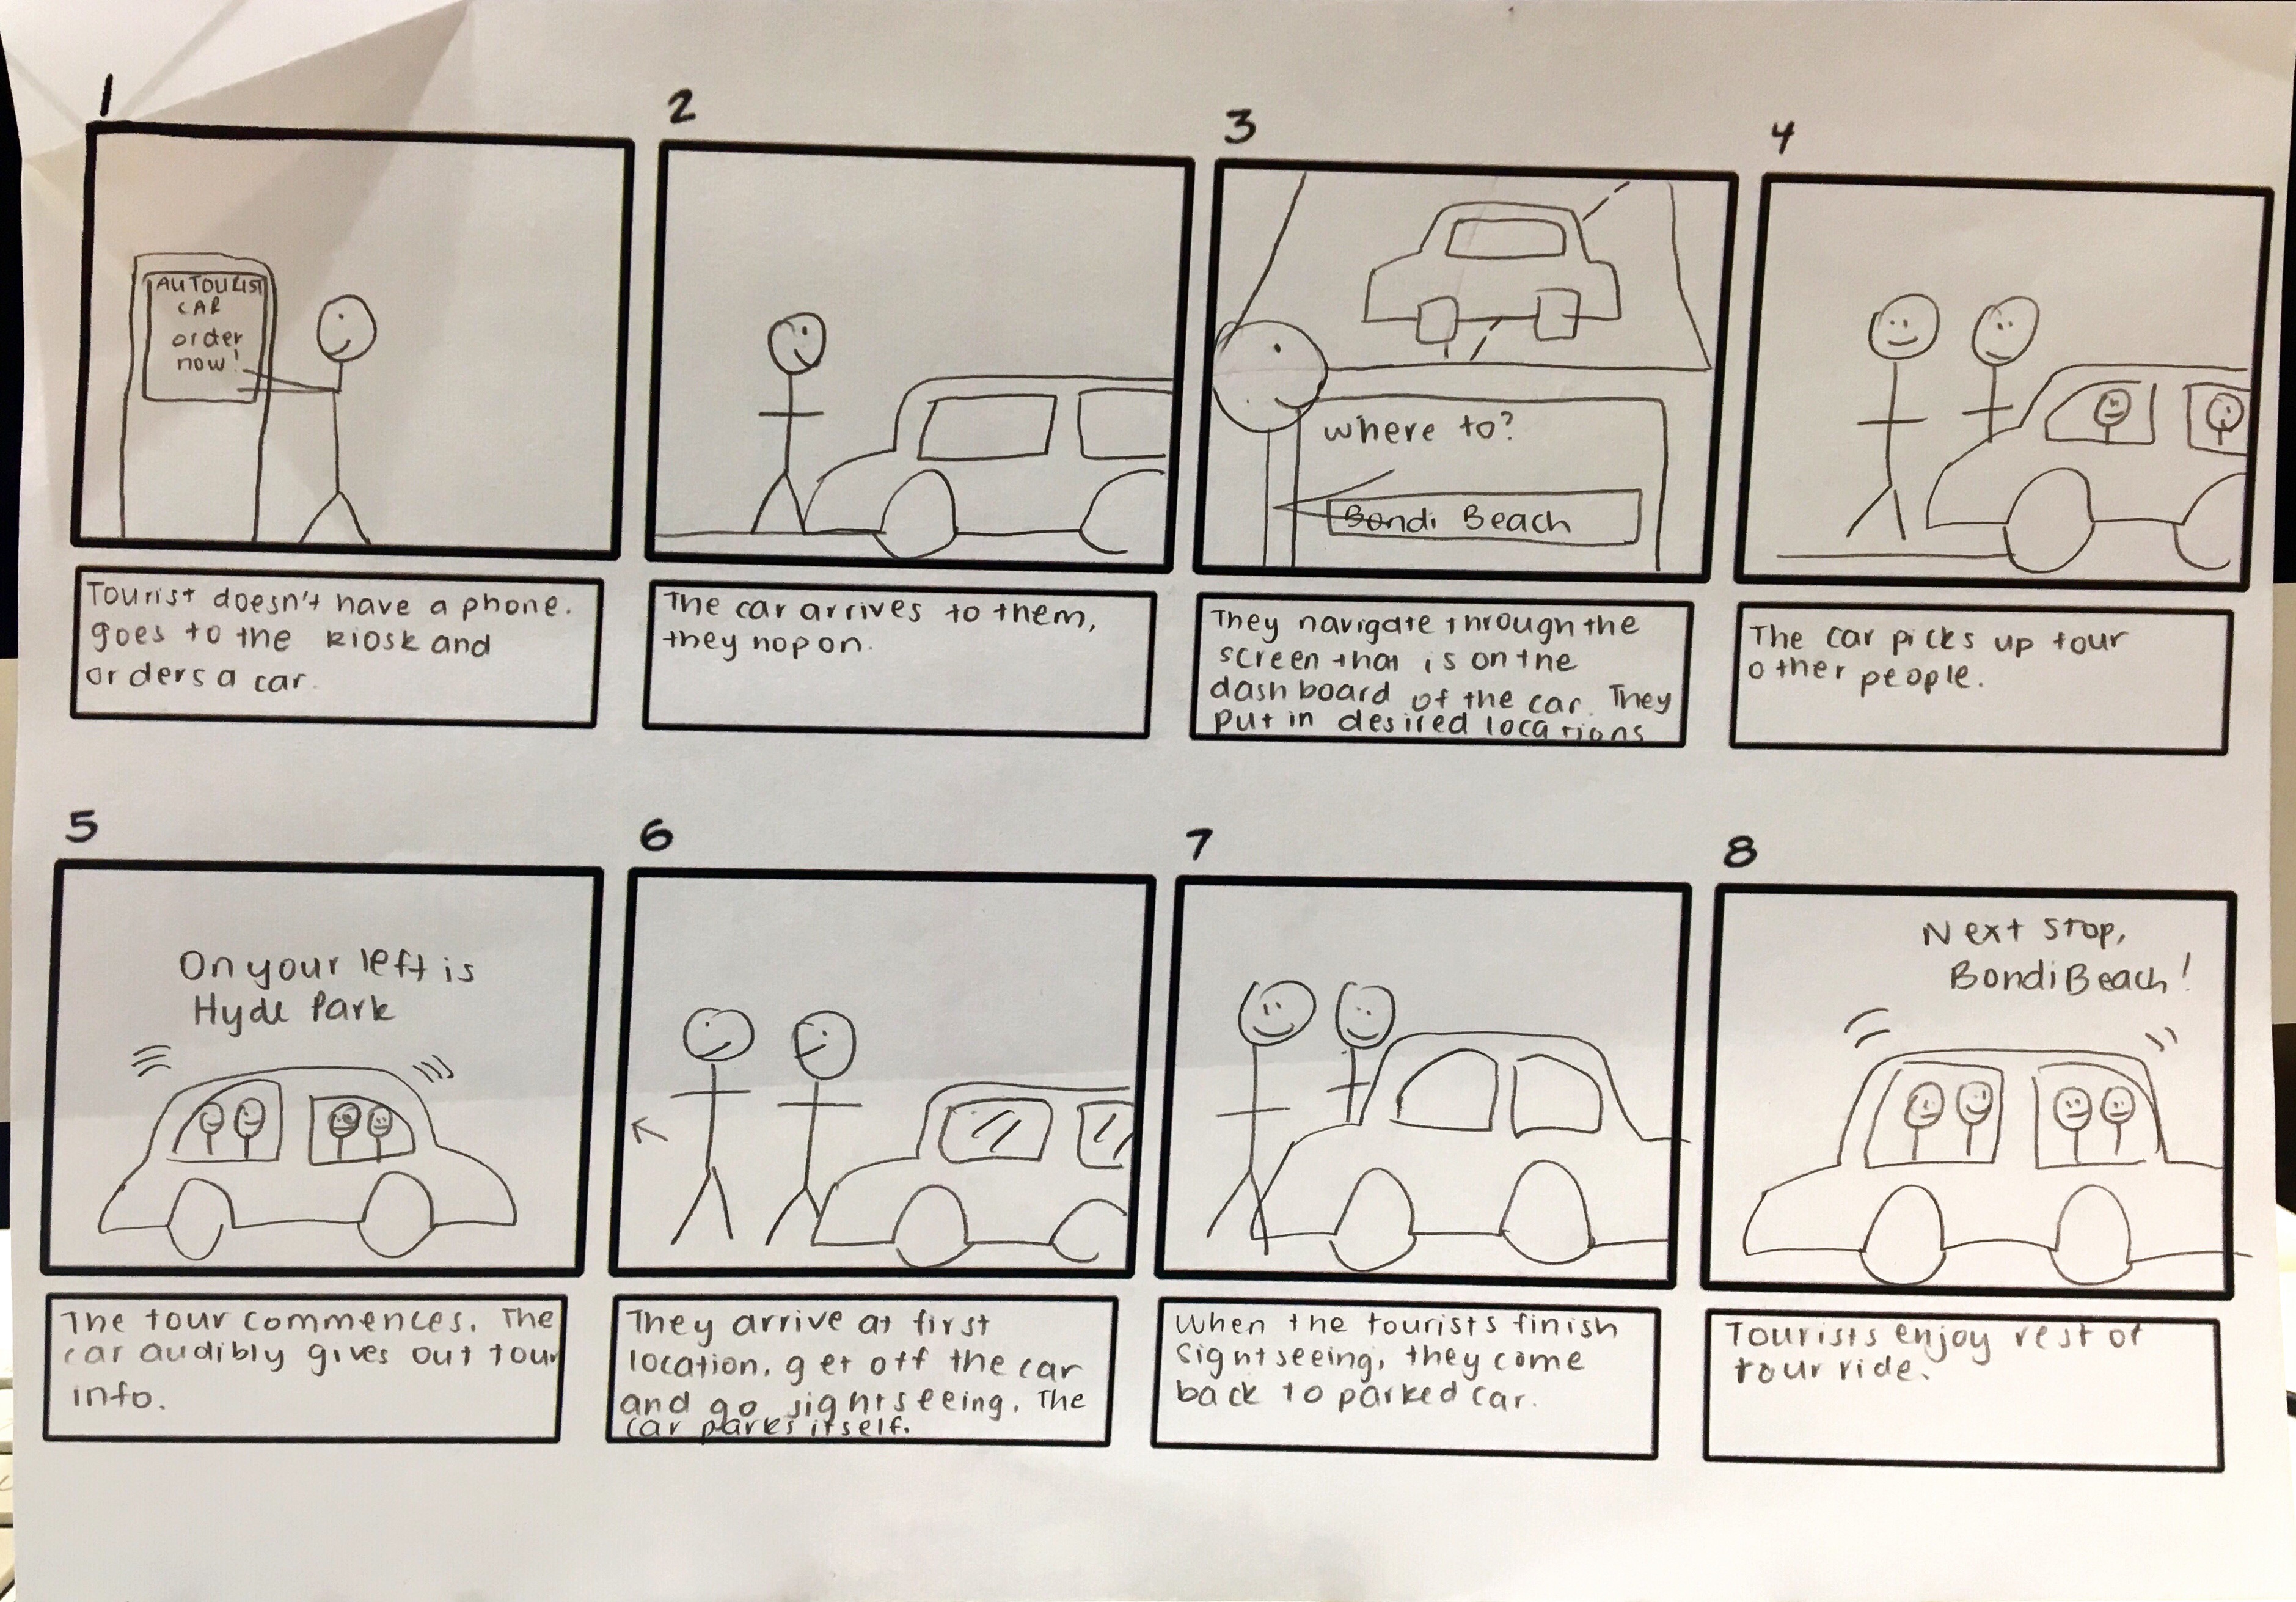 1
2
3
4
AUTOURIST
CAR
order
now!
where to?
Bondi Beach
Tourist doesn't have a phone.
goes to the kiosk and
orders a car.
The car arrives to them,
they hop on.
They navigate through the
screen that is on the
dashboard of the car. They
put in desired locations
The car picks up tour
other people.
5
6
7
8
On your left is
Hyde Park
Next stop,
Bondi Beach!
The tour commences. The
car audibly gives out tour
info.
They arrive at first
location, get off the car
and go sightseeing. The
car parks itself.
When the tourists finish
sightseeing, they come
back to parked car.
Tourists enjoy rest of
tour ride.